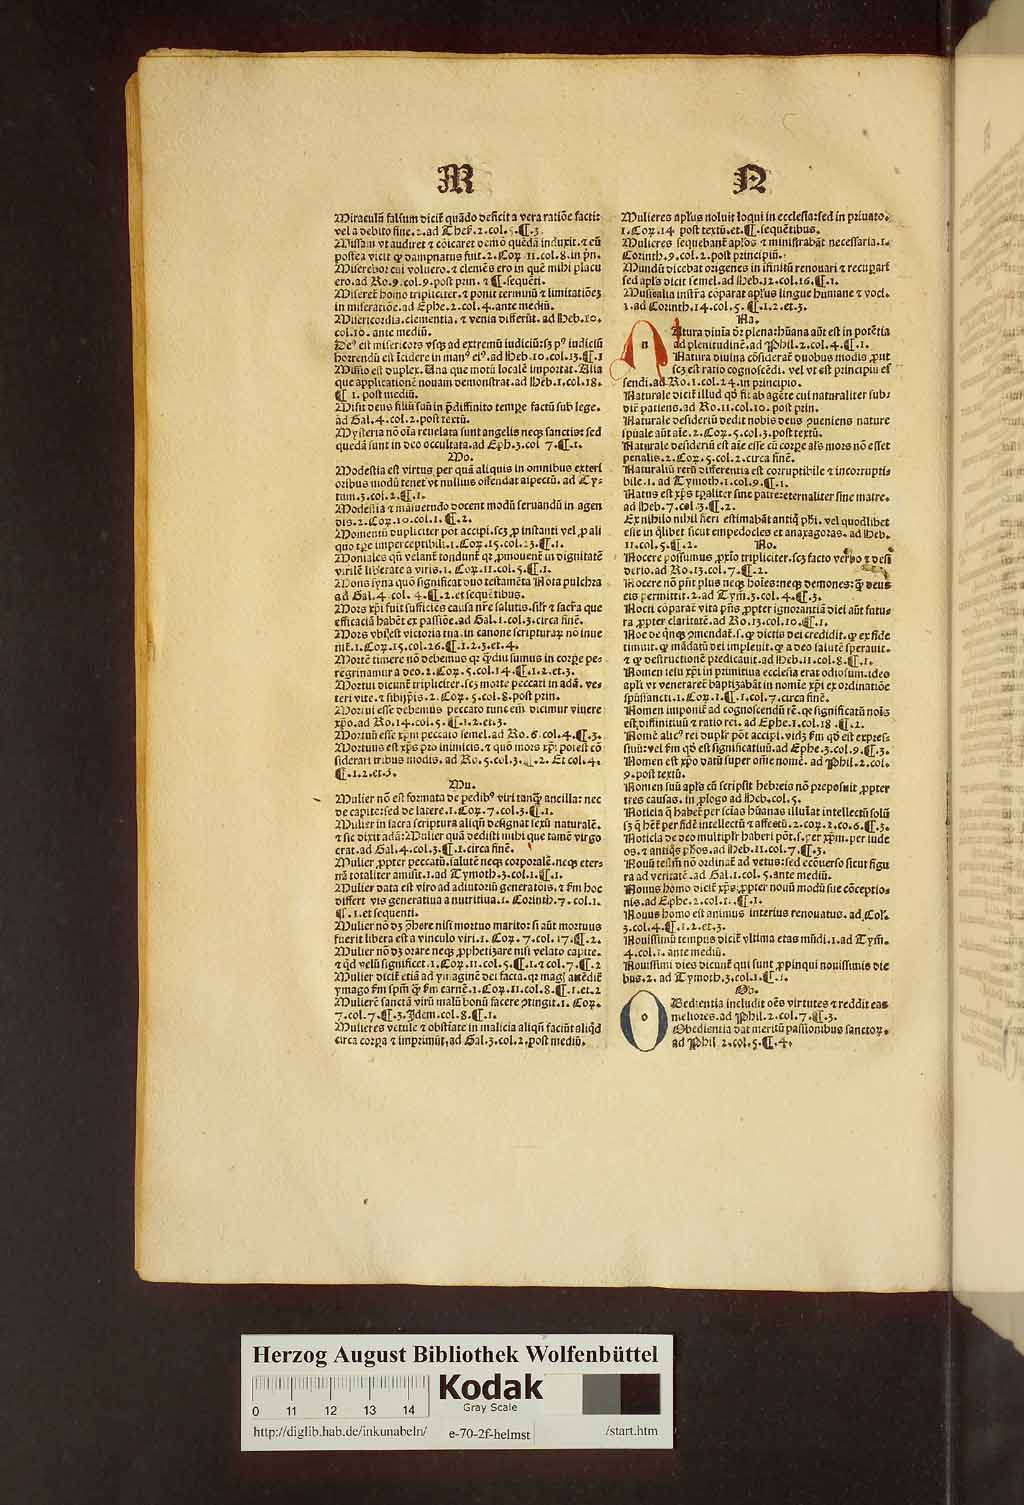 M
Miraculũ falsum dicit̃ quãdo deficit a vera ratiõe facti:
vel a debito fine.2.ad Thes̃.2.col.5.¶.3.
Missam vt audiret ⁊ cõicaret demõ quẽdã induxit.⁊ cũ
postea vicit ꝙ dampnatus fuit.2.Coꝝ 11.col.8.in pñ.
Miserebor cui voluero.⁊ clemẽs ero in quẽ mihi placu
ero.ad Ro.9.col.9.post prin.⁊ ¶.sequẽti.
Miseret̃ homo tripliciter.⁊ ponit terminũ ⁊ limitatiõeȝ
in miseratiõe.ad Ephe.2.col.4.ante mediũ.
Misericordia.clementia.⁊ venia differũt.ad Heb.10.
col.10.ante mediũ.
Deꝰ est misericors vsqȝ ad extremũ iudiciũ:sȝ pꝰ iudiciũ
horrendũ est ĩcidere in manꝰ eiꝰ.ad Heb.10.col.13.¶.1
Missio est duplex. Una que motũ localẽ importat. Alia
que applicationẽ nouam demonstrat.ad Heb.1.col.18.
¶ 1.post mediũ.
Misit deus filiũ suũ in p̃diffinito tempꝛe factũ sub lege.
ad Gal.4.col.2.post textũ.
Mysteria nõ oĩa reuelata sunt angelis neqȝ sanctis:sed
quedã sunt in deo occultata.ad Eph.3.col 7.¶.1.
Mo.
Modestia est virtus per quã aliquis in omnibus exteri
oribus modũ tenet vt nullius offendat aspectũ.ad Ty-
tum.3.col.2.¶.1.
Modestia ⁊ mãsuetudo docent modũ seruandũ in agen
dis.2.Coꝝ.10.col.1.¶.2.
Momentũ dupliciter põt accipi.sȝ ꝓ instanti vel ꝓ ali
quo tp̃e imperceptibili.1.Coꝝ.15.col.23.¶.1.
Moniales qñ velant̃ tondunt̃ qꝛ ꝓmouent̃ in dignitatẽ
virilẽ liberate a viris.1.Coꝝ.11.col.5.¶.1.
Mons syna quõ significat duo testamẽta Nota pulchra
ad Gal.4.col.4.¶.2.et sequẽtibus.
Mors xp̃i fuit sufficiẽs causa nr̃e salutis.silr̃ ⁊ sacr̃a que
efficaciã habẽt ex passiõe.ad Gal.1.col.3.circa finẽ.
Mors vbi est victoria tua.in canone scripturaꝝ nõ inue
nit̃.1.Coꝝ.15.col.26.¶.1.2.3.et.4.
Mortẽ timere nõ debemus qꝛ q̃diu sumus in corpe pe-
regrinamur a deo.2.Coꝝ.5.col.14.¶.1.2.et.3.
Mortui dicunt̃ tripliciter.sȝ morte peccati in adã.ve-
teri vite.⁊ sibijp̃is.2.Coꝝ.5.col.8.post prin.
Mortui esse debemus peccato tunc eñ dicimur viuere
xp̃o.ad Ro.14.col.5.¶.1.2.et.3.
Mortuũ esse xp̃m peccato semel.ad Ro.6.col.4.¶.3.
Mortuus est xp̃s pro inimicis.⁊ quõ mors xp̃i potest cõ
siderari tribus modis.ad Ro.5.col.3.¶.2. Et col.4.
¶.1.2.et.3.
Mu.
Mulier nõ est formata de pedibꝰ viri tanq̃ ancilla:nec
de capite:sed de latere.1.Coꝝ.7.col.3.¶.1.
Mulier in sacra scriptura aliqñ designat sexũ naturalẽ.
⁊ sic dixit adã:Mulier quã dedisti mihi que tamẽ virgo
erat.ad Gal.4.col.3.¶.1.circa finẽ.
Mulier ꝓpter peccatũ.salutẽ neqȝ corporalẽ.neqȝ eter-
nã totaliter amisit.1.ad Tymoth.3.col.1.¶.1.
Mulier data est viro ad adiutoriũ generatõis.⁊ ẜm hoc
differt vis generatiua a nutritiua.1.Corinth.7.col.1.
¶.1.et sequenti.
Mulier nõ dȝ ꝯ̃here nisi mortuo marito:si aũt mortuus
fuerit libera est a vinculo viri.1.Coꝝ.7.col.17.¶.2.
Mulier nõ dȝ orare neqȝ ꝓphetizare nisi velato capite.
⁊ qd velũ significet.1.Coꝝ.11.col.5.¶.1.⁊ col.7.¶.2
Mulier dicit̃ etiã ad ymaginẽ dei facta.qꝛ magꝭ attẽdit̃
ymago ẜm spm̃ q̃ ẜm carnẽ.1.Coꝝ.11.col.8.¶.1.et.2
Mulierẽ sanctã virũ malũ bonũ facere ꝯtingit.1.Coꝝ.
7.col.7.¶.3.Idem.col.8.¶.1.
Mulieres vetule ⁊ obstĩate in malicia aliqñ faciũt aliqd
circa corꝑa ⁊ imprimũt.ad Gal.3.col.2.post mediũ.
N
Mulieres apl̃us noluit loqui in ecclesia:sed in priuato.
1.Coꝝ.14 post textũ.et.¶.sequẽtibus.
Mulieres sequebant̃ apl̃os ⁊ ministrabãt necessaria.1.
Corinth.9.col.2.post principiũ.
Mundũ dicebat origenes in ifinitũ renouari ⁊ recupari
sed apl̃s dicit semel.ad Heb.12.col.16.¶.1.
Musicalia instr̃a cõparat apl̃us lingue humane ⁊ voci.
1.ad Corinth.14.col.5.¶.1.2.et.3.
Na.
n
Atura diuĩa dr̃ plena:hũana aũt est in potẽtia
ad plenitudinẽ.ad Phil.2.col.4.¶.1.
Natura diuina cõsiderat̃ duobus modis ꝓut
scȝ est ratio cognoscẽdi.vel vt est principiũ es
sendi.ad Ro.1.col.24.in principio.
Naturale dicit̃ illud qđ fit ab agẽte cui naturaliter sub-
dit̃ patiens.ad Ro.11.col.10.post prin.
Naturale desideriũ dedit nobis deus ꝓueniens nature
spũale aũt aĩe.2.Coꝝ.5.col.3.post textũ.
Naturale desideriũ est aĩe esse cũ corpe als̃ mors nõ esset
penalis.2.Coꝝ.5.col.2.circa finẽ.
Naturaliũ rerũ differentia est corruptibile ⁊ incorrupti-
bile.1.ad Tymoth.1.col.9.¶.1.
Natus est xp̃s tp̃aliter sine patre:eternaliter sine matre.
ad Heb.7.col.3.¶.2.
Ex nihilo nihil fieri estimabãt antiq̃ phĩ.vel quodlibet
esse in q̃libet sicut empedocles et anaxagoras.ad Heb.
11.col.5.¶.2.
No.
Nocere possumus ꝓxĩo tripliciter.sȝ facto verbo ⁊ desi
derio.ad Ro.13.col.7.¶.2.
Nocere nõ pñt plus neqȝ hoĩes:neqȝ demones:q̃ deus
eis permittit.2.ad Tym̃.3.col.4.¶.3.
Nocti cõparat̃ vita pñs ꝓpter ignorantiã diei aũt futu-
ra ꝓpter claritatẽ.ad Ro.13.col.10.¶.1.
Noe de q̃nqȝ ꝯmendat̃.s.ꝙ dictis dei credidit.ꝙ ex fide
timuit.ꝙ mãdatũ dei impleuit.ꝙ a deo salutẽ sperauit.
⁊ ꝙ destructionẽ predicauit.ad Heb.11.col.8.¶.1.
Nomen iesu xp̃i in primitiua ecclesia erat odiosum.ideo
apl̃i vt veneraret̃ baptizabãt in nomĩe xp̃i ex ordinatiõe
spũssancti.1.Coꝝ.1.¶.1.col.7.circa finẽ.
Nomen imponit̃ ad cognoscendũ rẽ.qꝛ significatũ noĩs
est diffinitiuũ ⁊ ratio rei.ad Ephe.1.col.18.¶.2.
Nomẽ alicꝰ rei duplr̃ põt accipi.vidȝ ẜm qđ est expres-
siuũ:vel ẜm qđ est significatiuũ.ad Ephe.3.col.9.¶.3.
Nomen est xp̃o datũ super om̃e nomẽ.ad Phil.2.col.
9.post textũ.
Nomen suũ apl̃s cũ scripsit hebreis nõ preposuit ꝓpter
tres causas.in ꝓlogo ad Heb.col.5.
Noticia q̃ habet̃ per sciẽas hũanas illuĩat intellectũ solũ
sȝ q̃ hẽt̃ per fidẽ intellectũ ⁊ affectũ.2.coꝝ.2.co.6.¶.3.
Noticia de deo multiplr̃ haberi põt.s.per xp̃m.per iude
os.⁊ antiq̃s ph̃os.ad Heb.11.col.7.¶.3.
Nouũ testm̃ nõ ordinat̃ ad vetus:sed ecõuerso sicut figu
ra ad veritatẽ.ad Gal.1.col.5.ante mediũ.
Nouus homo dicit̃ xp̃s ꝓpter nouũ modũ sue cõceptio-
nis.ad Ephe.2.col.1.¶.1.
Nouus homo est animus interius renouatus.ad Col̃.
3.col.4.¶.1.2.et.3.
Nouissimũ tempus dicit̃ vltima etas mũdi.1.ad Tym̃.
4.col.1.ante mediũ.
Nouissimi dies dicunt̃ qui sunt ꝓpinqui nouissimis die
bus.2.ad Tymoth.3.col.1.¶.1.
Ob.
o
Bedientia includit oẽs virtutes ⁊ reddit eas
meliores.ad Phil.2.col.7.¶.3.
Obedientia dat meritũ passionibus sanctoꝝ.
ad Phil.2.col.5.¶.4.
Herzog August Bibliothek Wolfenbüttel
0 11 12 13 14
Kodak
Gray Scale
http://diglib.hab.de/inkunabeln/ e-70-2f-helmst /start.htm